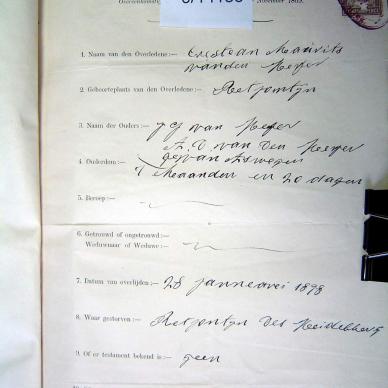 1. Naam van den Overledene:— Cristean Maurits
vanden Heyer
2. Geboorteplaats van den Overledene:— Rietfontyn
3. Naam der Ouders:— J G van Heyer
A. C. van den Heyer
gevan Aswegen
4. Ouderdom:— 7 Maanden en 20 dagen
5. Beroep:—
6. Getrouwd of ongetrouwd:—
Weduwnaar of Weduwe:—
7. Datum van overlijden:— 28 janneuari 1898
8. Waar gestorven:— Rietfontyn Dest Heidelberg
9. Of er testament bekend is:— geen